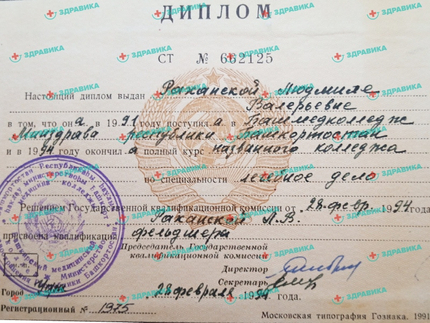 ДИПЛОМ
СТ № 662125
Настоящий диплом выдан Раханской Людмиле
Валерьевне
в том, что она в 1991 году поступила в Башмедколледж
Минздрава республики Башкортостан
и в 1994 окончила полный курс названного колледжа
по специальности лечебное дело
Решением Государственной квалификационной комиссии от 28 февр. 1994
Раханской Л.В.
присвоена квалификация фельдшера
Председатель Государственной
квалификационной комиссии
Директор
Секретарь
Город Уфа 28 февраля 1994 года.
Регистрационный № 1375
Московская типография Гознака. 1991
ЗДРАВИКА